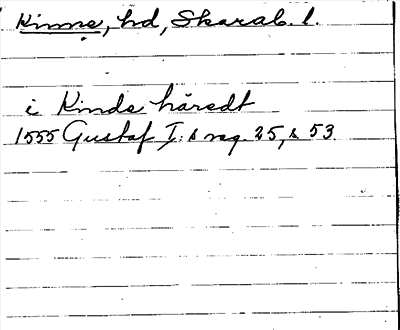 Kinne, hd, Skarab. l.
i Kinde häredt
1555 Gustaf I:s reg. 25, s 53.